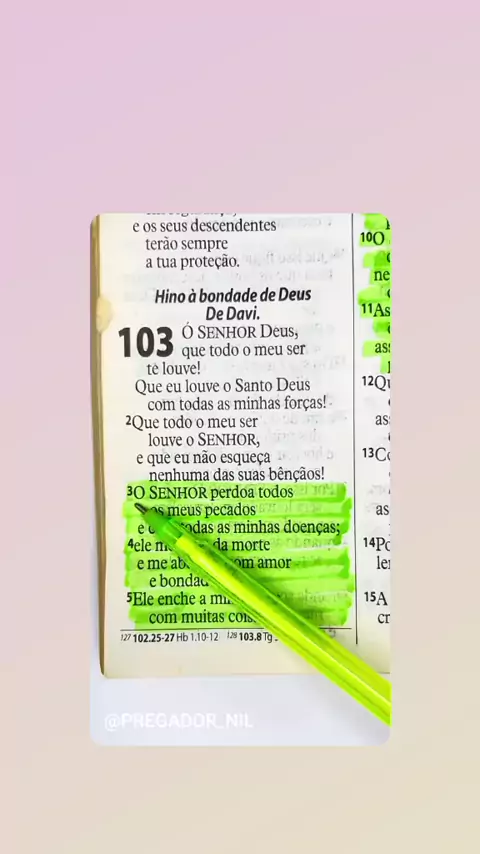 e os seus descendentes
terão sempre
a tua proteção.
Hino à bondade de Deus
De Davi.
103 Ó SENHOR Deus,
que todo o meu ser
te louve!
Que eu louve o Santo Deus
com todas as minhas forças!
2Que todo o meu ser
louve o SENHOR,
e que eu não esqueça
nenhuma das suas bênçãos!
3O SENHOR perdoa todos
os meus pecados
e todas as minhas doenças;
4ele da morte
e me com amor
e
5Ele enche a
com muitas
127 102.25-27 Hb 1.10-12 128 103.8
10O
ne
11As
ass
12Qu
as
13Co
as
14Po
ler
15A
cr
@PREGADOR_NIL